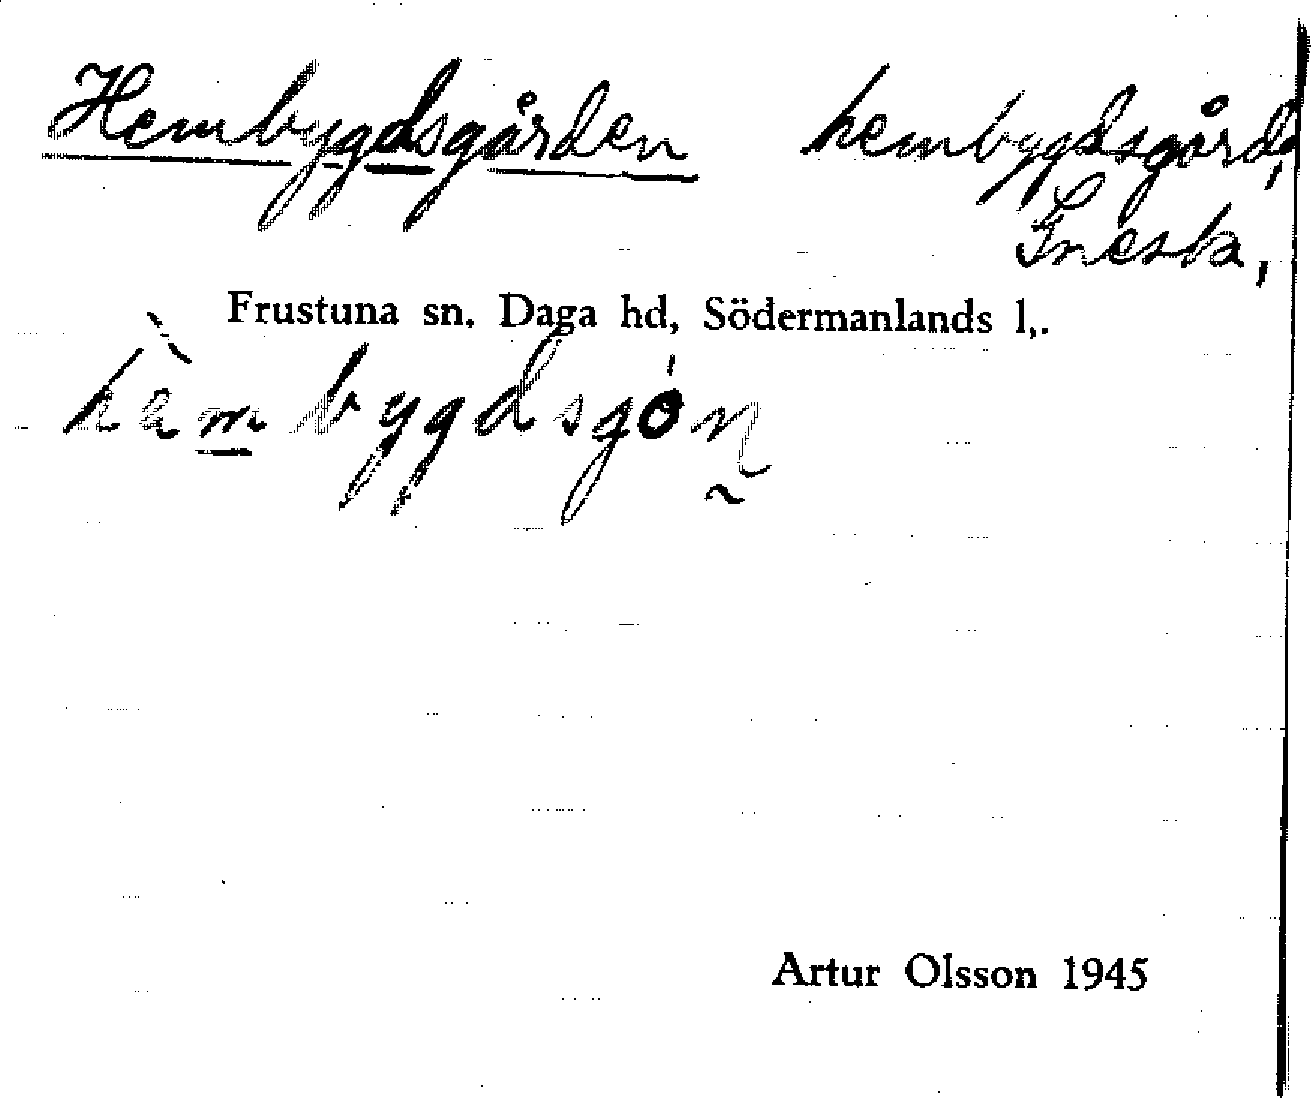 Hembygdsgården hembygdsgård,
Gnesta,
Frustuna sn. Daga hd, Södermanlands l,.
hèmbygdsgón
Artur Olsson 1945